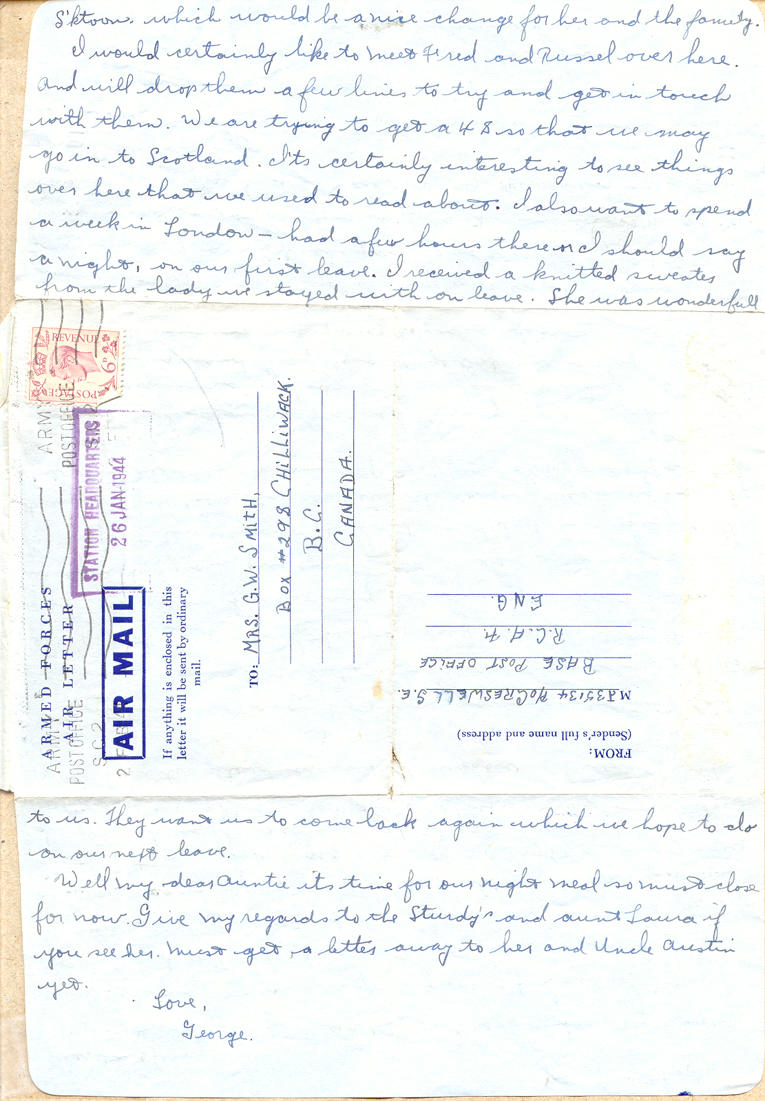 S'ktoon. which would be a nice change for her and the family.
I would certainly like to meet Fred and Russel over here.
And will drop them a few lines to try and get in touch
with them. We are trying to get a 48 so that we may
go in to Scotland. It's certainly interesting to see things
over here that we used to read about. I also want to spend
a week in London – had a few hours there or I should say
a night, on our first leave. I received a knitted sweates
from the lady we stayed with on leave. She was wonderfull
REVENUE
POSTAGE
6D
ARMY
POST OFFICE
STATION HEADQUARTERS
26 JAN 1944
ARMED FORCES
AIR LETTER
ARMY
POST OFFICE
S.C.2
AIR MAIL
If anything is enclosed in this
letter it will be sent by ordinary
mail.
TO: MRS. G.W. SMITH,
BOX #298 CHILLIWACK.
B.C.
CANADA.
FROM:
(Sender's full name and address)
CRESWELL S.E.
BASE POST OFFICE
ENG.
to us. They want us to come back again which we hope to do
on our next leave.
Well my dear Auntie its time for our night meal so must close
for now. Give my regards to the Sturdy's and aunt Laura if
you see her. Must get a letter away to her and Uncle Austin
yet.
Love,
George.